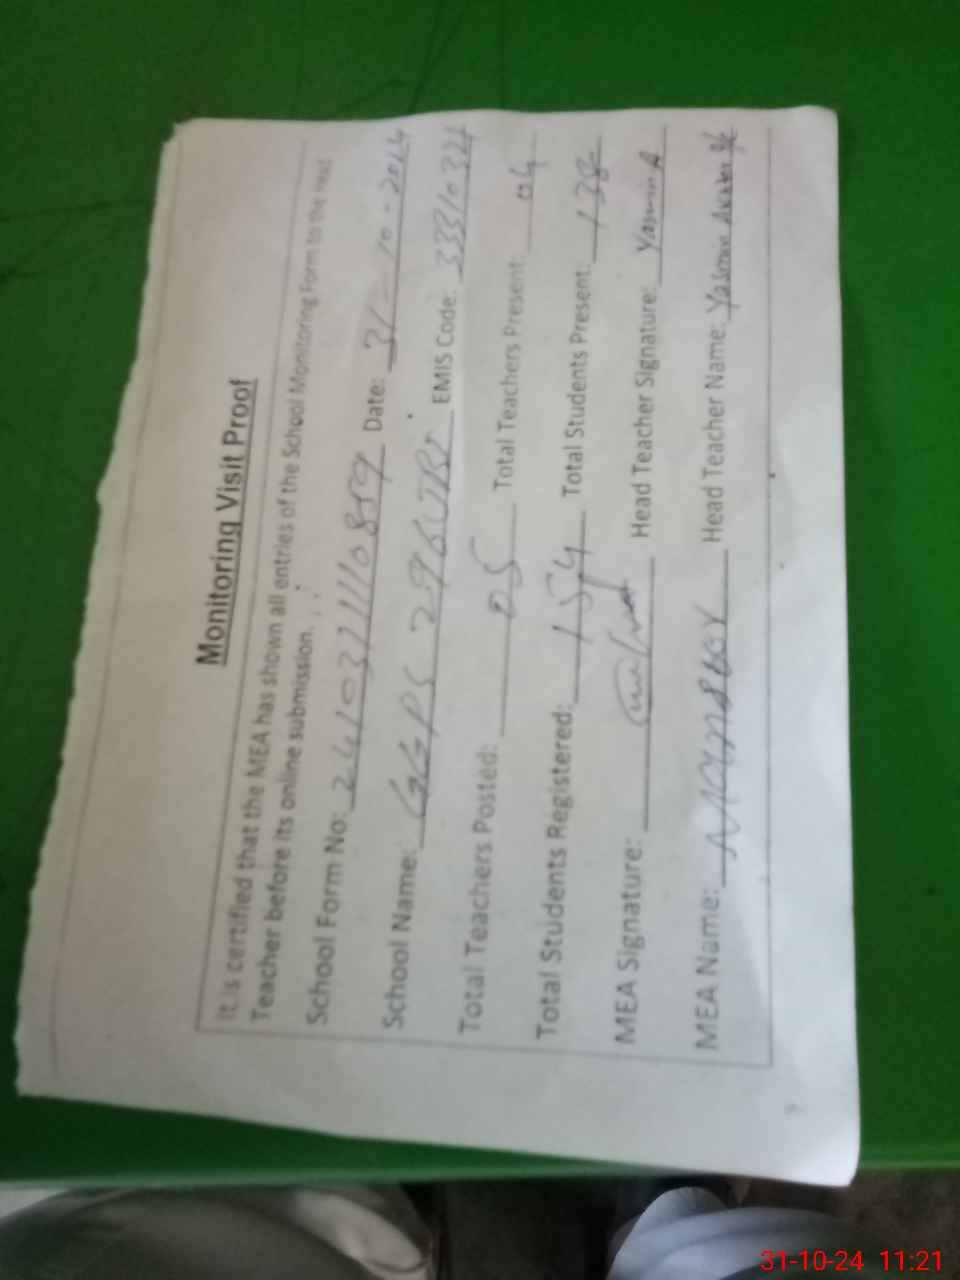 Monitoring Visit Proof
It is certified that the MEA has shown all entries of the School Monitoring Form to the Head
Teacher before its online submission.
School Form No: Date: 31-10-2024
School Name: GGPS 296 EMIS Code: 33310321
Total Teachers Posted: 05 Total Teachers Present: 04
Total Students Registered: 154 Total Students Present: 138
MEA Signature: Head Teacher Signature: Yasmin A
MEA Name: Head Teacher Name: Yasmin
31-10-24 11:21